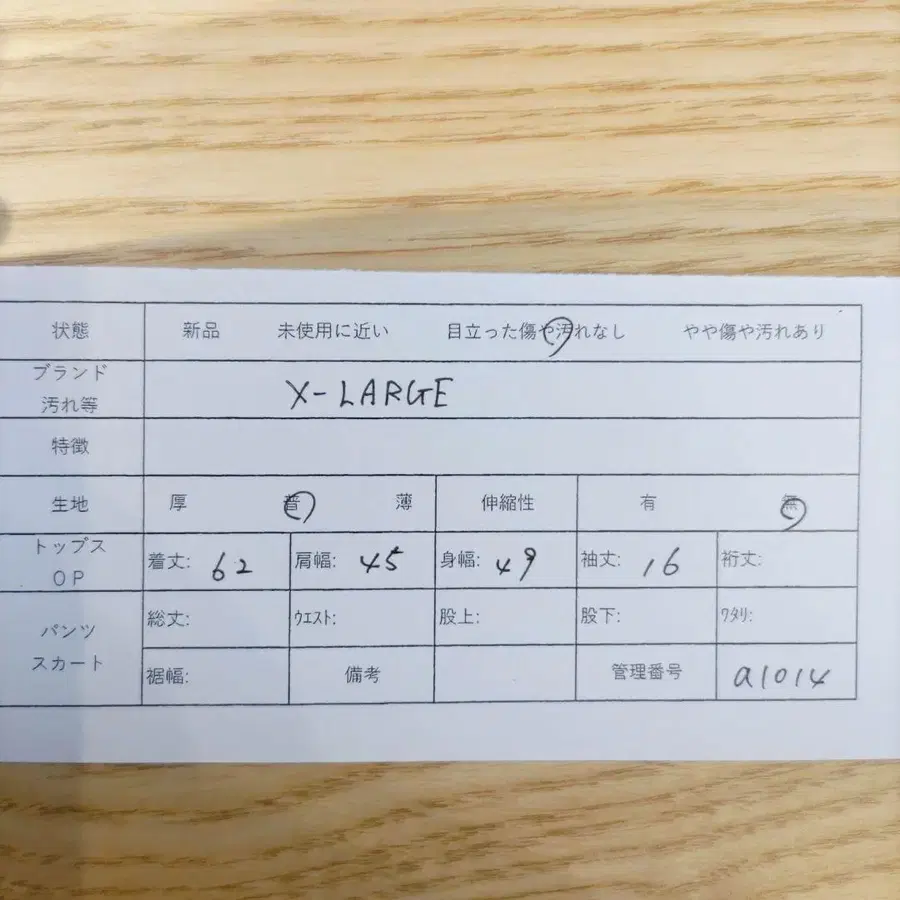 状態 新品 未使用に近い 目立った傷や汚れなし やや傷や汚れあり
ブランド
汚れ等 X-LARGE
特徴
生地 厚 普 薄 伸縮性 有 無
トップス
OP 着丈: 62 肩幅: 45 身幅: 49 袖丈: 16 裄丈:
パンツ
スカート
総丈: ウエスト: 股上: 股下: ワタリ:
裾幅: 備考 管理番号 a1014